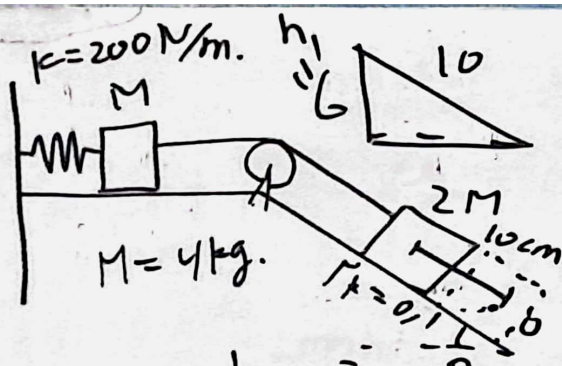 K=200N/m.
h₁
10
M
6
2M
10cm
M=4kg.
μk=0,1
b